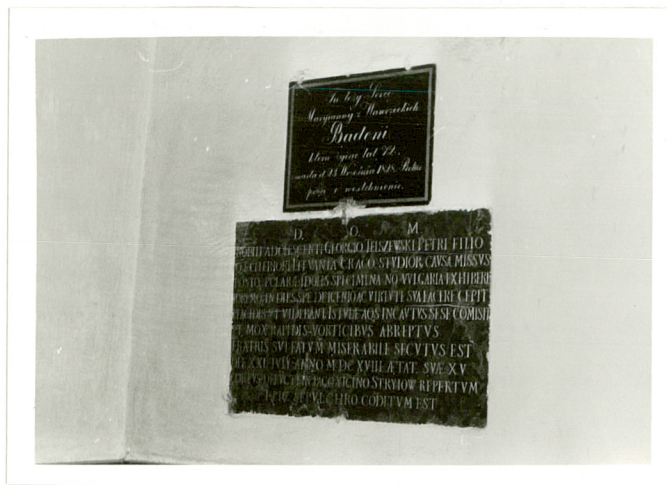 Tu leży Serce
Maryanny z Wawrzeckich
Badeni
która żyjąc lat 72.
umarła d. 23 Września 1828. Roku
prosi o westchnienie.
D. O. M
NOBILI ADOLESCENTI GEORGIO IELSZEWSKI PETRI FILIO
LITVANIA CRACO STVDIOR CAVSA MISSVS
SPECIMINA NO VVLGARIA EXHIBERE
SPE DE INGENIO AC VIRTVTE SVA FACERE CEPIT
INCAVTVS SESE COMISIT
ET MOX RAPIDIS VORTICIBVS ABREPTVS
FRATRIS SVI FATVM MISERABILE SECVTVS EST
DIE XXI IVLY ANNO M DC XVIII ÆTAT SVÆ XV
VICINO STRYIOW REPERTVM
SEPVLCHRO CODITVM EST